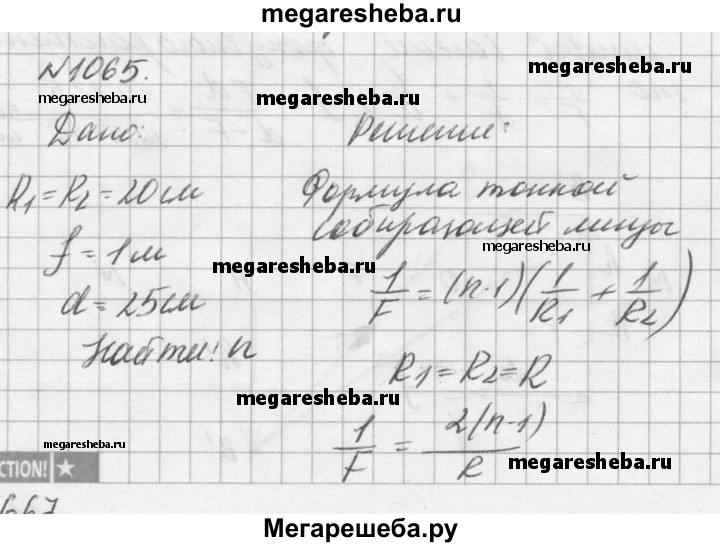 megaresheba.ru
№1065.
megaresheba.ru
megaresheba.ru
Дано:
Решение:
R₁=R₂=20см
Формула тонкой
собирающей линзы
megaresheba.ru
f=1м
megaresheba.ru
1/F = (n-1)(1/R₁ + 1/R₂)
d=25см
Найти: n
R₁=R₂=R
megaresheba.ru
megaresheba.ru
1/F = 2(n-1)/R
megaresheba.ru
CTION!
Мегарешеба.ру